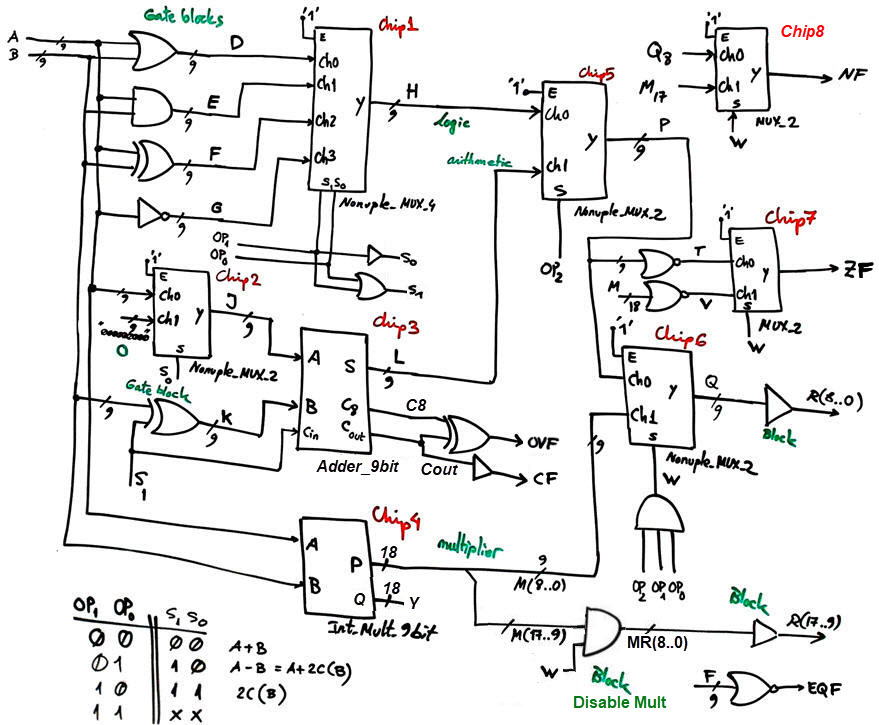 Gate blocks
A
B
9
9
D
9
E
9
F
9
G
9
'1'
Chip1
E
Ch0
Ch1
Ch2
Ch3
Y
S1 S0
Nonuple_MUX_4
H
9
logic
arithmetic
OP1
OP0
S0
S1
'1'
Chip5
E
Ch0
Ch1
Y
S
Nonuple_MUX_2
OP2
P
9
'1'
Chip8
E
Q8
Ch0
M17
Ch1
Y
S
MUX_2
W
NF
'1'
Chip7
E
T
Ch0
9
M
18
V
Ch1
Y
S
MUX_2
W
ZF
'1'
Chip2
E
Ch0
9
Ch1
9
"000000000"
0
Y
S
S0
Nonuple_MUX_2
J
9
Gate block
9
K
9
S1
Chip3
A
B
Cin
S
C8
Cout
Adder_9bit
L
9
C8
Cout
OVF
CF
'1'
Chip6
E
Ch0
Ch1
Y
S
Nonuple_MUX_2
9
W
OP2 OP1 OP0
Q
9
Block
R(8..0)
Chip4
A
B
P
Q
18
18
Y
Int_Mult_9bit
multiplier
9
M(8..0)
M(17..9)
W
Block
Disable Mult
MR(8..0)
Block
R(17..9)
F
9
EQF
OP1 OP0 S1 S0
0 0 0 0 A+B
0 1 1 0 A-B = A+2C(B)
1 0 1 1 2C(B)
1 1 X X